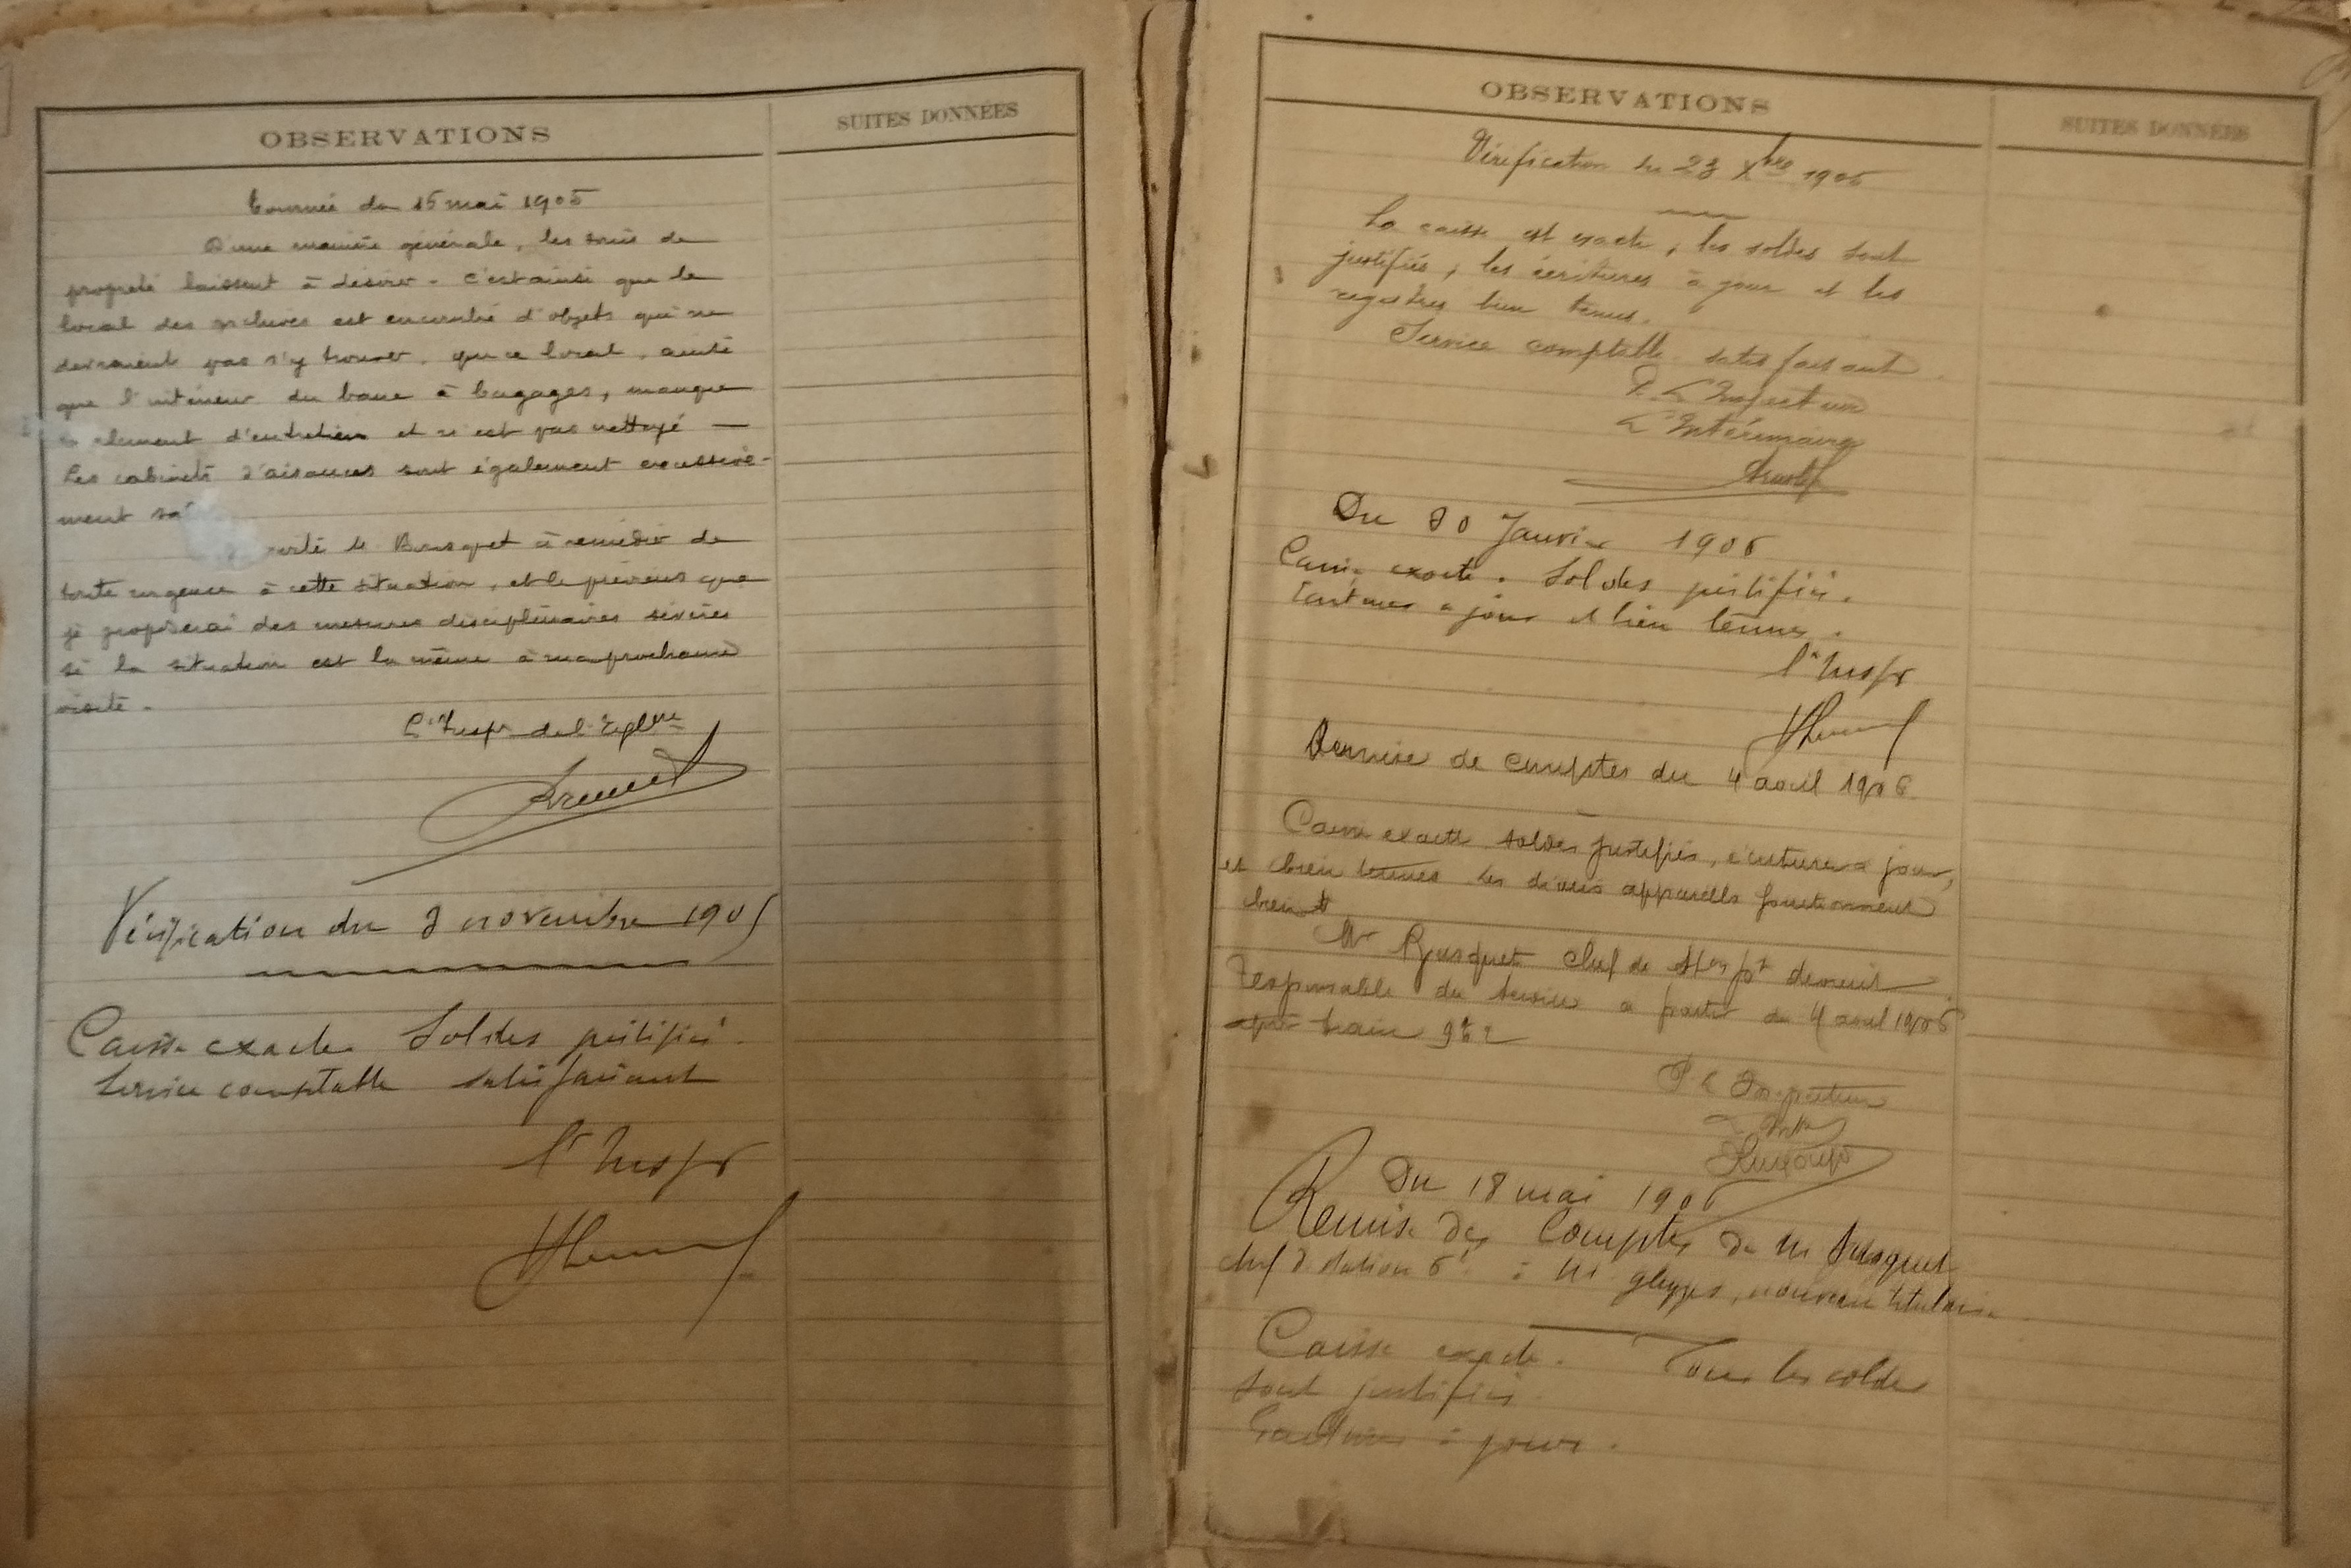 OBSERVATIONS
SUITES DONNÉES
Tournée du 15 mai 1905
D'une manière générale, les soins de
propreté laissent à désirer - C'est ainsi que le
local des archives est encombré d'objets qui ne
devraient pas s'y trouver, que ce local, ainsi
que l'intérieur du banc à bagages, manque
d'entretien et n'est pas nettoyé —
Les cabinets d'aisances sont également excessive-
ment
à remédier de
toute urgence à cette situation, et le préviens que
je proposerai des mesures disciplinaires sévères
si la situation est la même à ma prochaine
visite.
L'Inspr de l'
Vérification du 2 novembre 1905
Caisse exacte Soldes justifiés.
Service comptable satisfaisant
l'Inspr
OBSERVATIONS
SUITES DONNÉES
Vérification du 23 Xbre 1905
La caisse est exacte, les soldes sont
justifiés, les écritures à jour et les
registres bien tenus.
Service comptable satisfaisant
P. L'Inspecteur
L'Intérimaire
Du 20 Janvier 1906
Caisse exacte. Soldes justifiés.
Ecritures à jour et bien tenues.
l'Inspr
Remise de comptes du 4 avril 1906
Caisse exacte soldes justifiés, écritures à jour,
et bien tenues les divers appareils fonctionnent
bien
Mr Busquet chef deSton pt devient
responsable du service à partir du 4 avril 1906
train 982
P l'Inspecteur
Du 18 mai 1906
Remise des Comptes de M Busquet
chef d station 6e à Mr , nouveau titulaire
Caisse exacte. Tous les soldes
sont justifiés
Ecritures à jour.